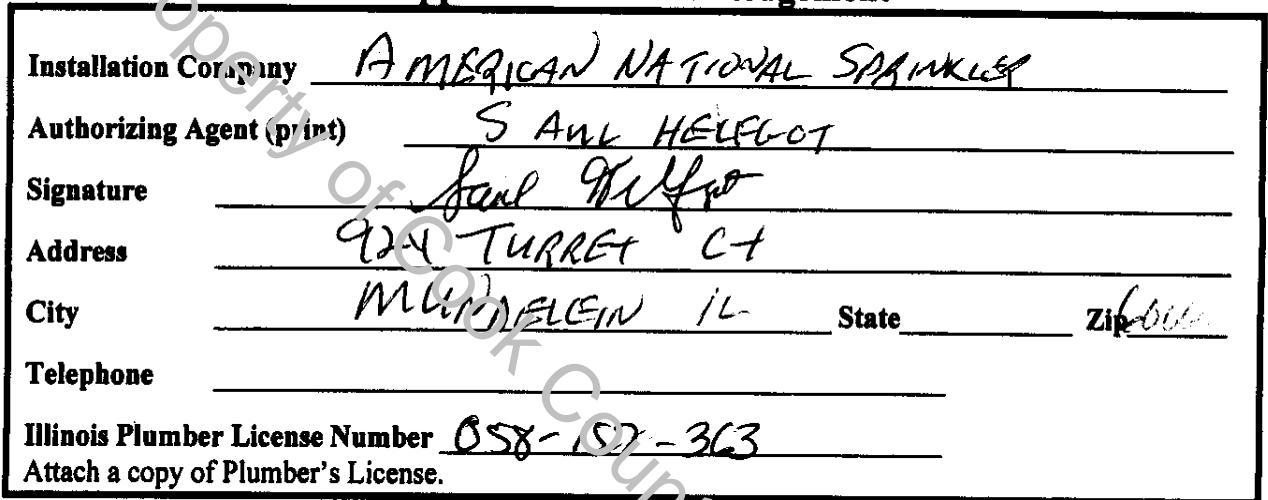 Installation Company AMERICAN NATIONAL SPRINKLER
Authorizing Agent (print) SAUL HELFGOT
Signature Saul Helfgot
Address 924 TURRET Ct
City MUNDELEIN IL State Zip
Telephone
Illinois Plumber License Number 058-157-363
Attach a copy of Plumber's License.
Property of Cook Coun